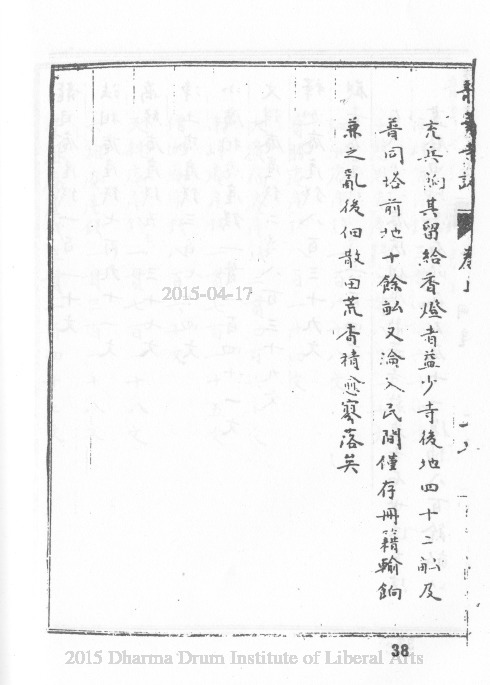 充兵餉其留給香燈者益少寺後地四十二畝及
普同塔前地十餘畝又淪入民間僅存冊籍輸餉
兼之亂後佃散田荒香積愈寥落矣
2015-04-17
2015 Dharma Drum Institute of Liberal Arts
38